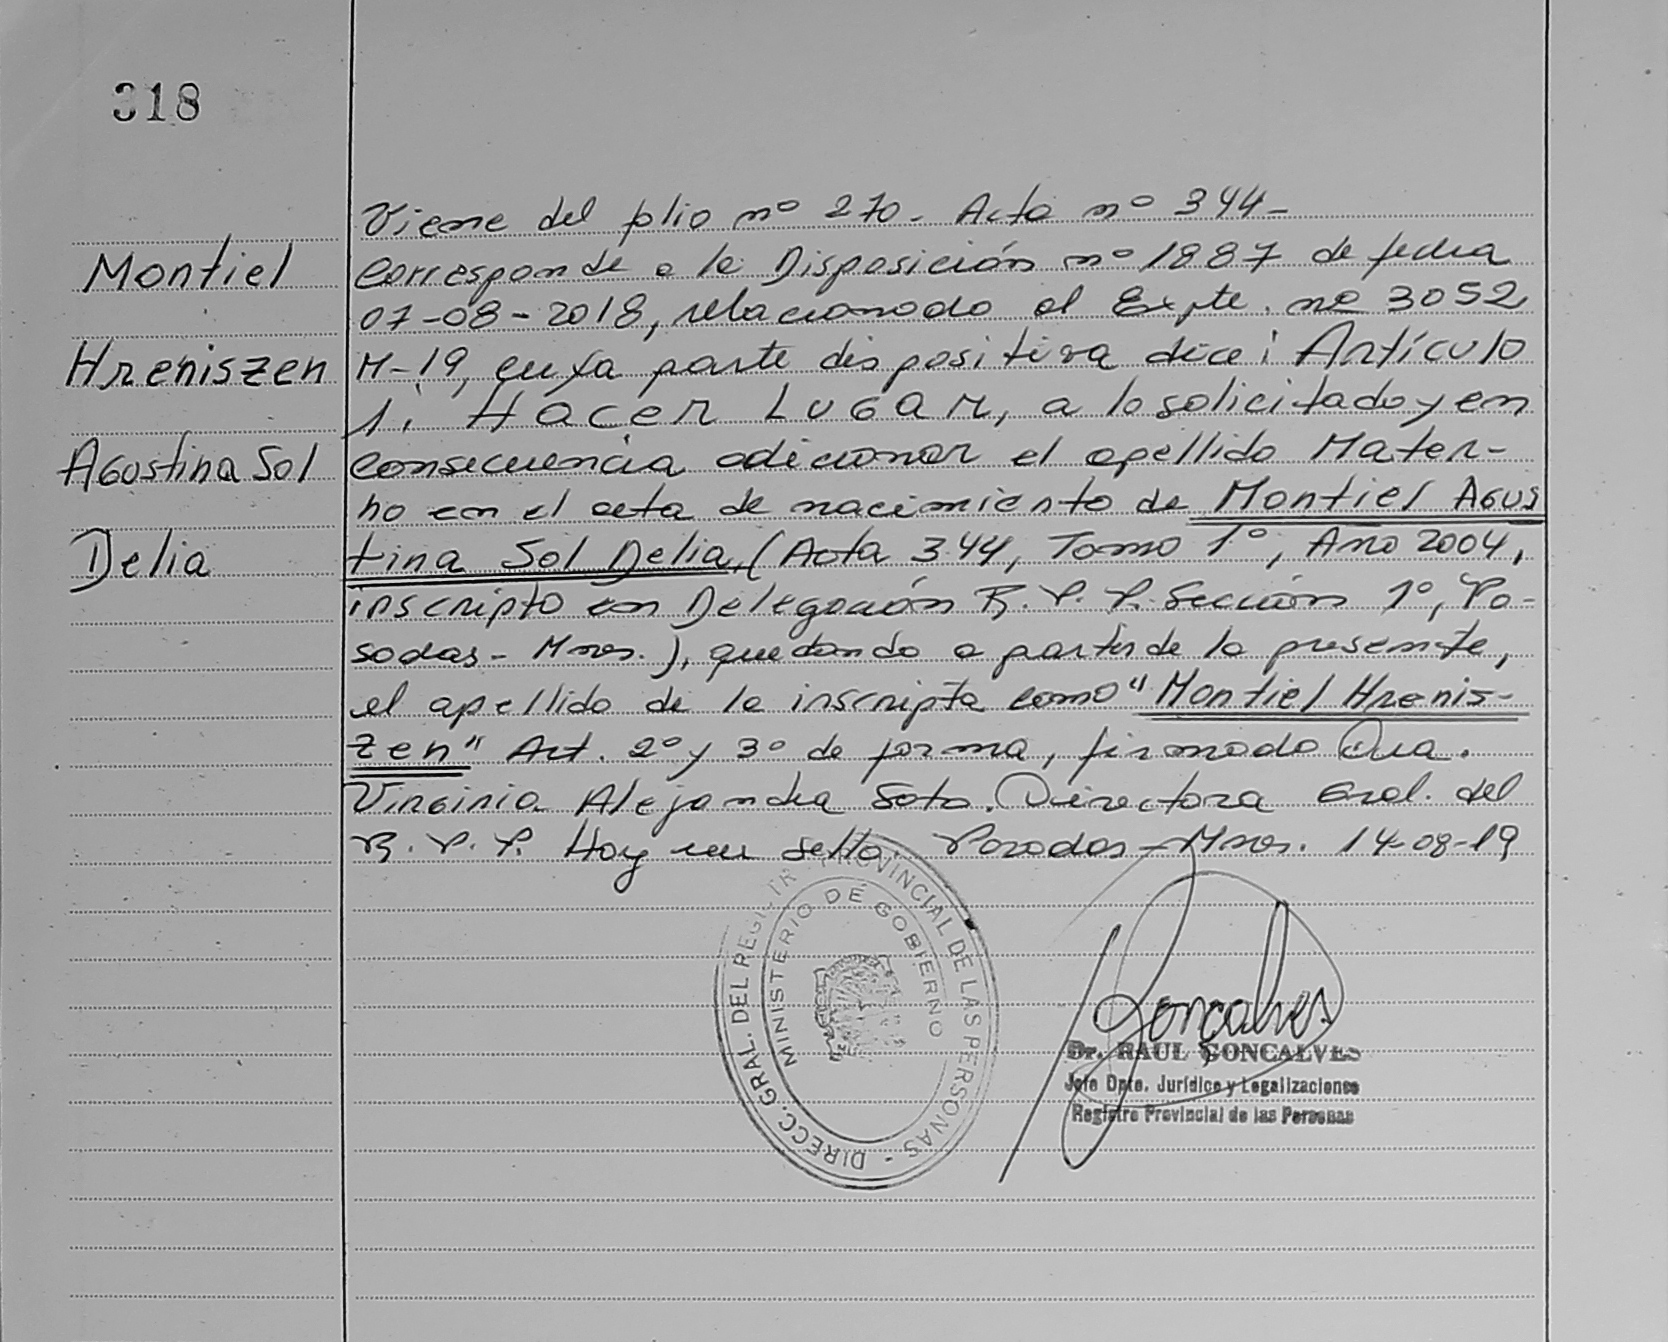 318
Montiel
Hreniszen
Agostina Sol
Delia
Viene del folio nº 270. Acta nº 344-
Corresponde a la Disposición nº 1887 de fecha
07-08-2018, relacionado al Expte. nº 3052
M-19, cuya parte dispositiva dice: Artículo
1: HACER LUGAR, a lo solicitado y en
consecuencia adicionar el apellido Mater-
no en el acta de nacimiento de Montiel Agus
tina Sol Delia, (Acta 344, Tomo 1º, Año 2004,
inscripto en Delegación R.P.P. Sección 1º, Po-
sadas - Mnes.), quedando a partir de la presente,
el apellido de la inscripta como "Montiel Hrenis-
zen" Art. 2º y 3º de forma, firmado Dra.
Virginia Alejandra Soto. Directora Gral. del
R.P.P. Hay un sello. Posadas - Mnes. 14-08-19
DIRECC. GRAL. DEL REGISTRO PROVINCIAL DE LAS PERSONAS -
MINISTERIO DE GOBIERNO
Gonçalves
Dr. RAUL GONCALVES
Jefe Dpto. Jurídico y Legalizaciones
Registro Provincial de las Personas